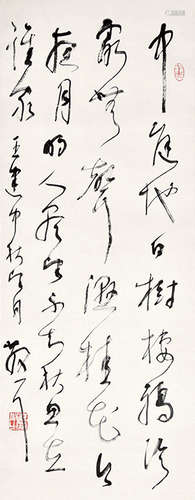 中庭地白樹棲鴉冷
露無聲濕桂花今
夜月明人盡望不知秋思在
誰家 王建中秋望月 散耳